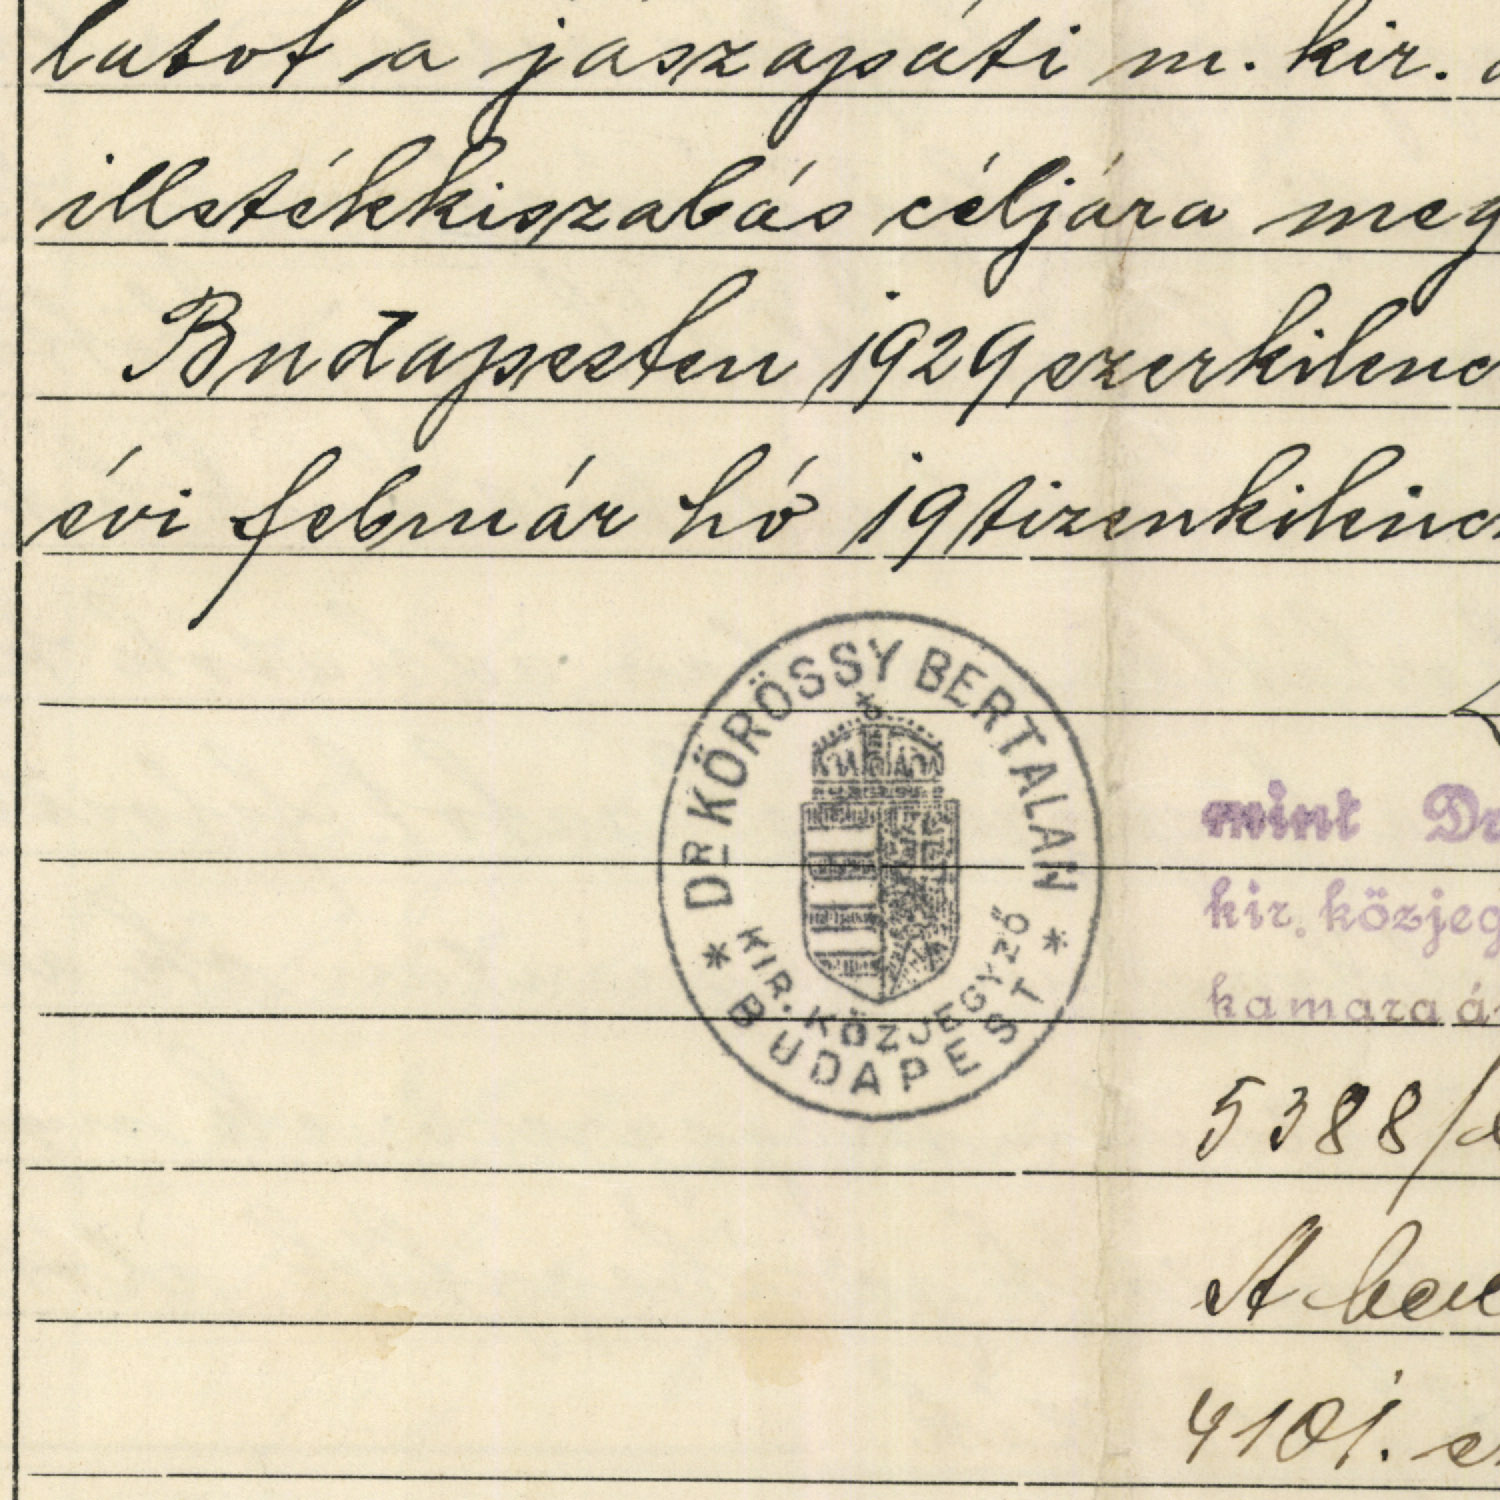 latot a jászapáti m. kir.
illetékkiszabás céljára meg
Budapesten 1929 ezerkilenc
évi február hó 19 tizenkilenc
DR KÖRÖSSY BERTALAN
* KIR. KÖZJEGYZŐ *
BUDAPEST
mint Dr
kir. közjeg
kamara á
5388/
A
4101.